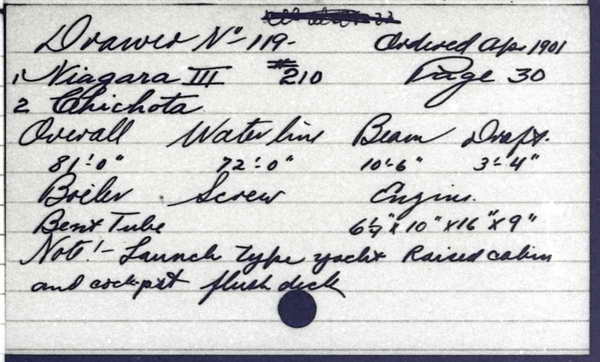 Drawer No 119- Ordered Apr 1901
1 Niagara III #210 Page 30
2 Chichota
Overall Water line Beam Draft.
81'-0" 72'-0" 10'-6" 3'-4"
Boiler Screw Engine.
Bent Tube 6 1/4" x 10" x 16" x 9"
Note! - Launch Type yacht Raised cabin
and cockpit flush deck